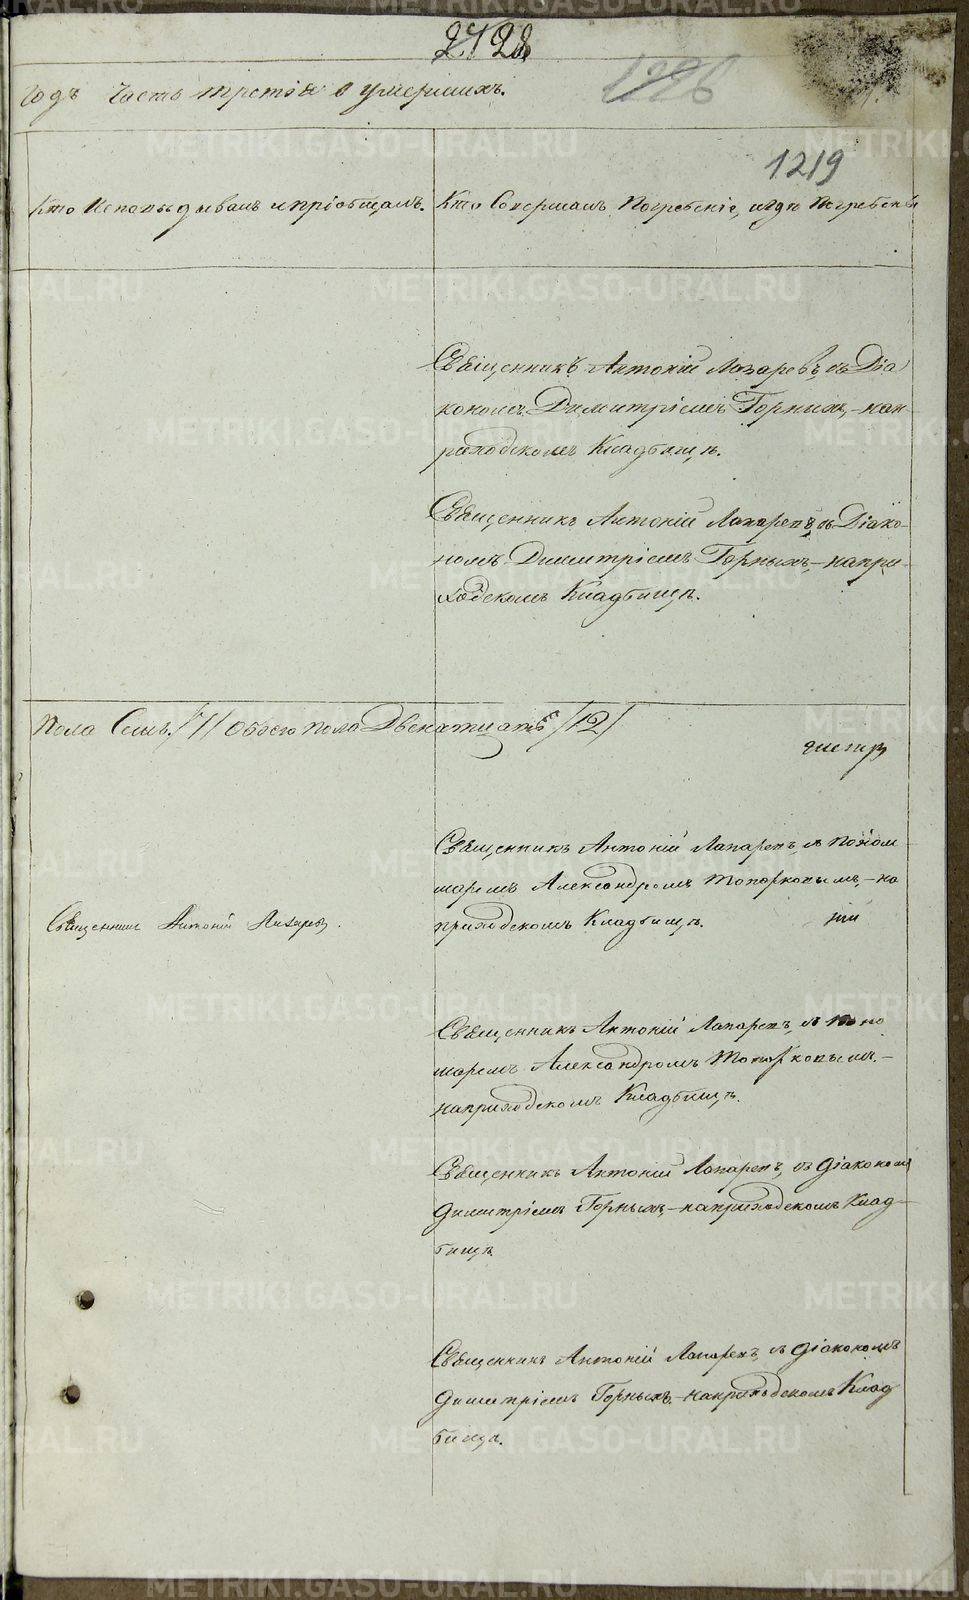 1226
Годъ Часть третія о умершихъ.
1219
Кто Исповѣдывалъ и пріобщалъ.
Кто Совершалъ Погребеніе, и гдѣ Погребены
Священникъ Антоній Лазаревъ, съ Діа
кономъ Димитріемъ Горныхъ, - на п
риходскомъ Кладбищѣ.
Священникъ Антоній Лазаревъ, съ Діако-
номъ Димитріемъ Горныхъ, - на при-
ходскомъ Кладбищѣ.
Пола Семь /7/ Обоего пола Двенатцать /12/
Священникъ Антоній Лазаревъ.
Священникъ Антоній Лазаревъ, съ Поном
маремъ Александромъ Топорковымъ, - на
приходскомъ Кладбищѣ.
Священникъ Антоній Лазаревъ, съ Поно
маремъ Александромъ Топорковымъ. -
на приходскомъ Кладбищѣ.
Священникъ Антоній Лазаревъ, съ діакономъ
Димитріемъ Горныхъ, - на приходскомъ Клад-
бищѣ.
Священникъ Антоній Лазаревъ, съ діакономъ
Димитріемъ Горныхъ, - на приходскомъ Клад
бищѣ.
METRIKI.GASO-URAL.RU